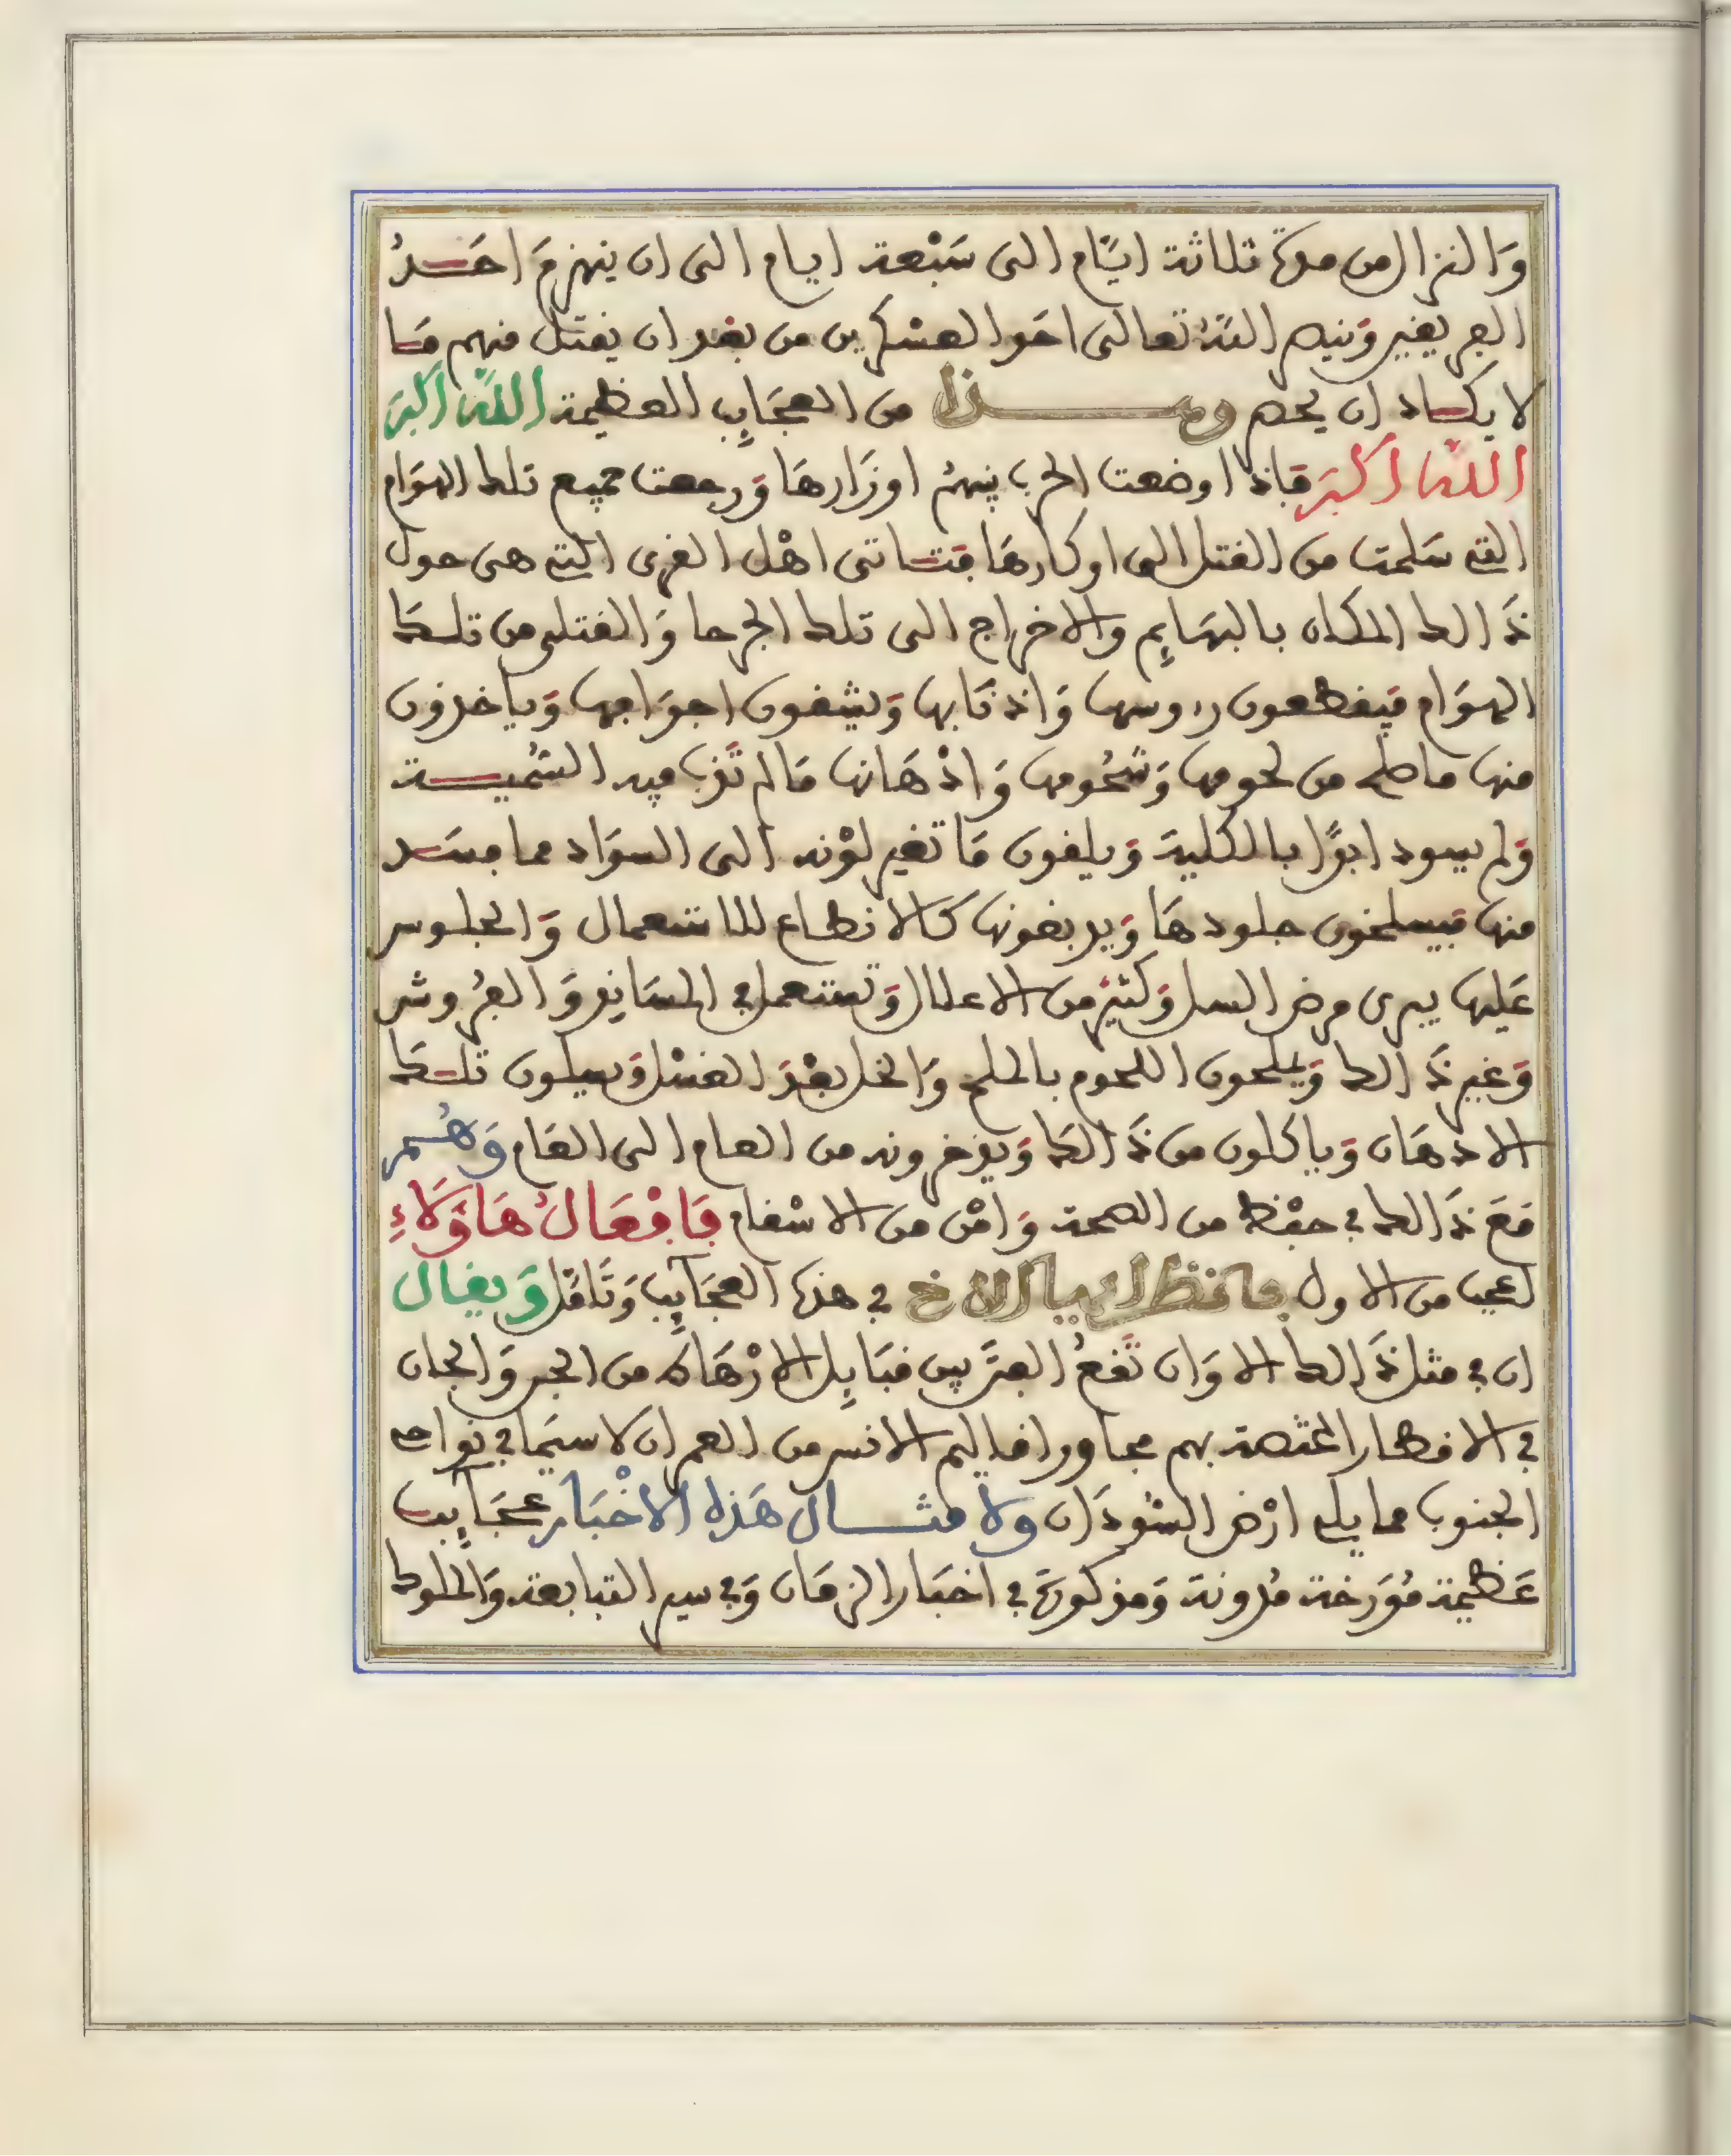 وَالنزال من مدة ثلاثة ايَّام الى سَبْعة ايام الى ان ينهزمَ احَـدُ
الفريقين وَيبيد اللهُ تعالى احَد العسْكرين من بعْد ان يقتل منهم مَـا
لا يكـاد ان يحصـ وهـــذا من العجَايِب العظيمة اللهُ اكْبَر
اللهُ اكْبَر فَاذا وضعت الحرب بينهمْ اوزَارهَا وَرجعت جميع تلك الهوَام
التى سَلمت من القتل الى اوكارهَا فتـَـاتى اهْل القرى التى هى حول
ذَالك المكان بالبهَايِم والاخراج الى تلك الجرحا وَالقتلى من تلـكَ
الهوَام فيَقطعون رءوسها وَاذنَابها وَيشقون اجوَافها وَياخذون
منها ما صلح من لحومها وَشحُومها وَادْهَانها مَا لم تَدب فيه السُّميـــة
وَلم يسود ابدًا بالكلية وَيلقون مَا تغير لوْنه الى السوَاد مما فسَـد
منها فيَسلخون جلودهَا وَيدبغونها كالانطاع للاستعمال وَالجلوس
عَليها يبرى مرض السل وَكثيرٌ من الاعلال وَتستعمل فى المسَانِد وَالفرُوش
وَغير ذَالك وَيملحون اللحوم بالملح وَالخل بعْدَ الغسْل وَيسلون تلـكَ
الادهَان وَياكلون من ذَالكَ وَيدخرونه من العام الى العَام وَهُــم
مَعَ ذَالك فى حفْظ من الصحة وَامْن من الاسْقام فَافْعَالُ هَاؤُلَاءِ
اعجب من الاول فانظر ايها الاخ فى هذه العجَايِب وَتَامَّل وَيقال
ان فى مثل ذَالك الاوَان تَقعُ الفتَن بين قبَايِل الارْهَاط من الجن وَالجان
فى الاقطار المختصة بهم مجاور اقاليم الانس من العمران لا سيمَا فى نوَاحى
الجنوب مما يلى ارْض السُّودَان ولامثـــال هَذه الاخْبَار عجَايِب
عَظيمة مُوَرخة مُدونة وَمذكورَة فى اخبَار الزمَان وَفى سير التبابعة وَالملوك